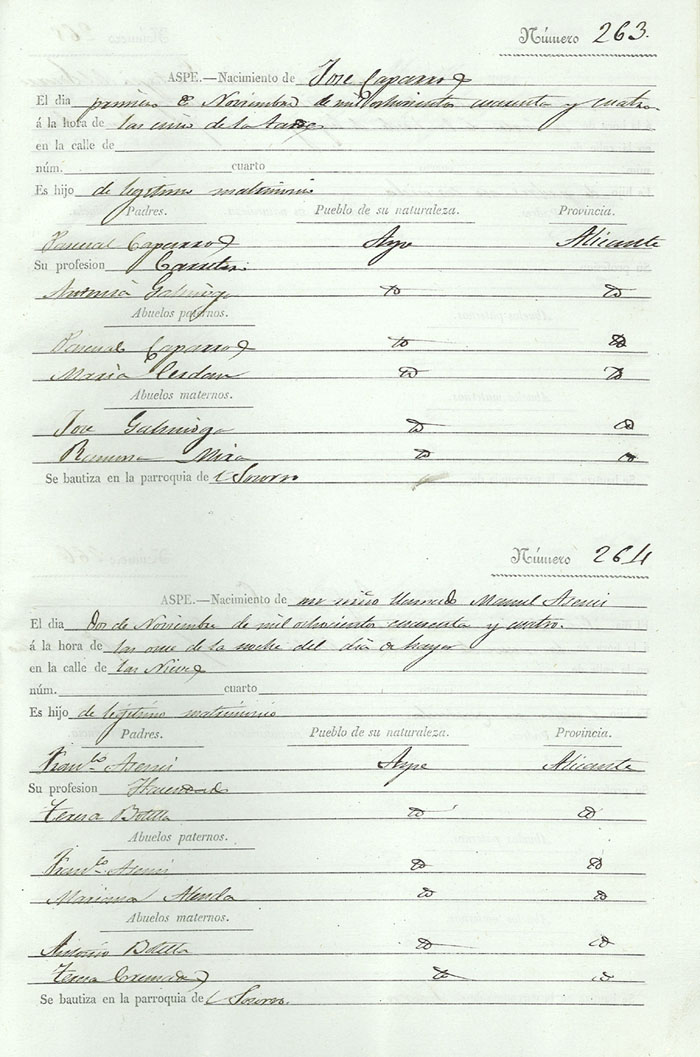 Número 263.
ASPE.—Nacimiento de Jose Caparros
El dia primero de Noviembre de mil ochocientos cuarenta y cuatro
á la hora de las cinco de la tarde
en la calle de
núm. cuarto
Es hijo de legitimo matrimonio
Padres. Pueblo de su naturaleza. Provincia.
Pascual Caparros Aspe Alicante
Su profesion
Antonia Galinsoga id id
Abuelos paternos.
Pascual Caparros id id
Maria Cerdan id id
Abuelos maternos.
Jose Galinsoga id id
Ramona Mira id id
Se bautiza en la parroquia de l Socorro
Número 264
ASPE.—Nacimiento de un niño llamado Manuel Asensi
El dia Dos de Noviembre de mil ochocientos cuarenta y cuatro.
á la hora de las once de la noche del dia de hayer
en la calle de las Nieves
núm. cuarto
Es hijo de legitimo matrimonio
Padres. Pueblo de su naturaleza. Provincia.
Franco Asensi Aspe Alicante
Su profesion Hacendado
Teresa Botella id id
Abuelos paternos.
Franco Asensi id id
Mariana Alenda id id
Abuelos maternos.
Antonio Botella id id
Teresa id id
Se bautiza en la parroquia de l Socorro.